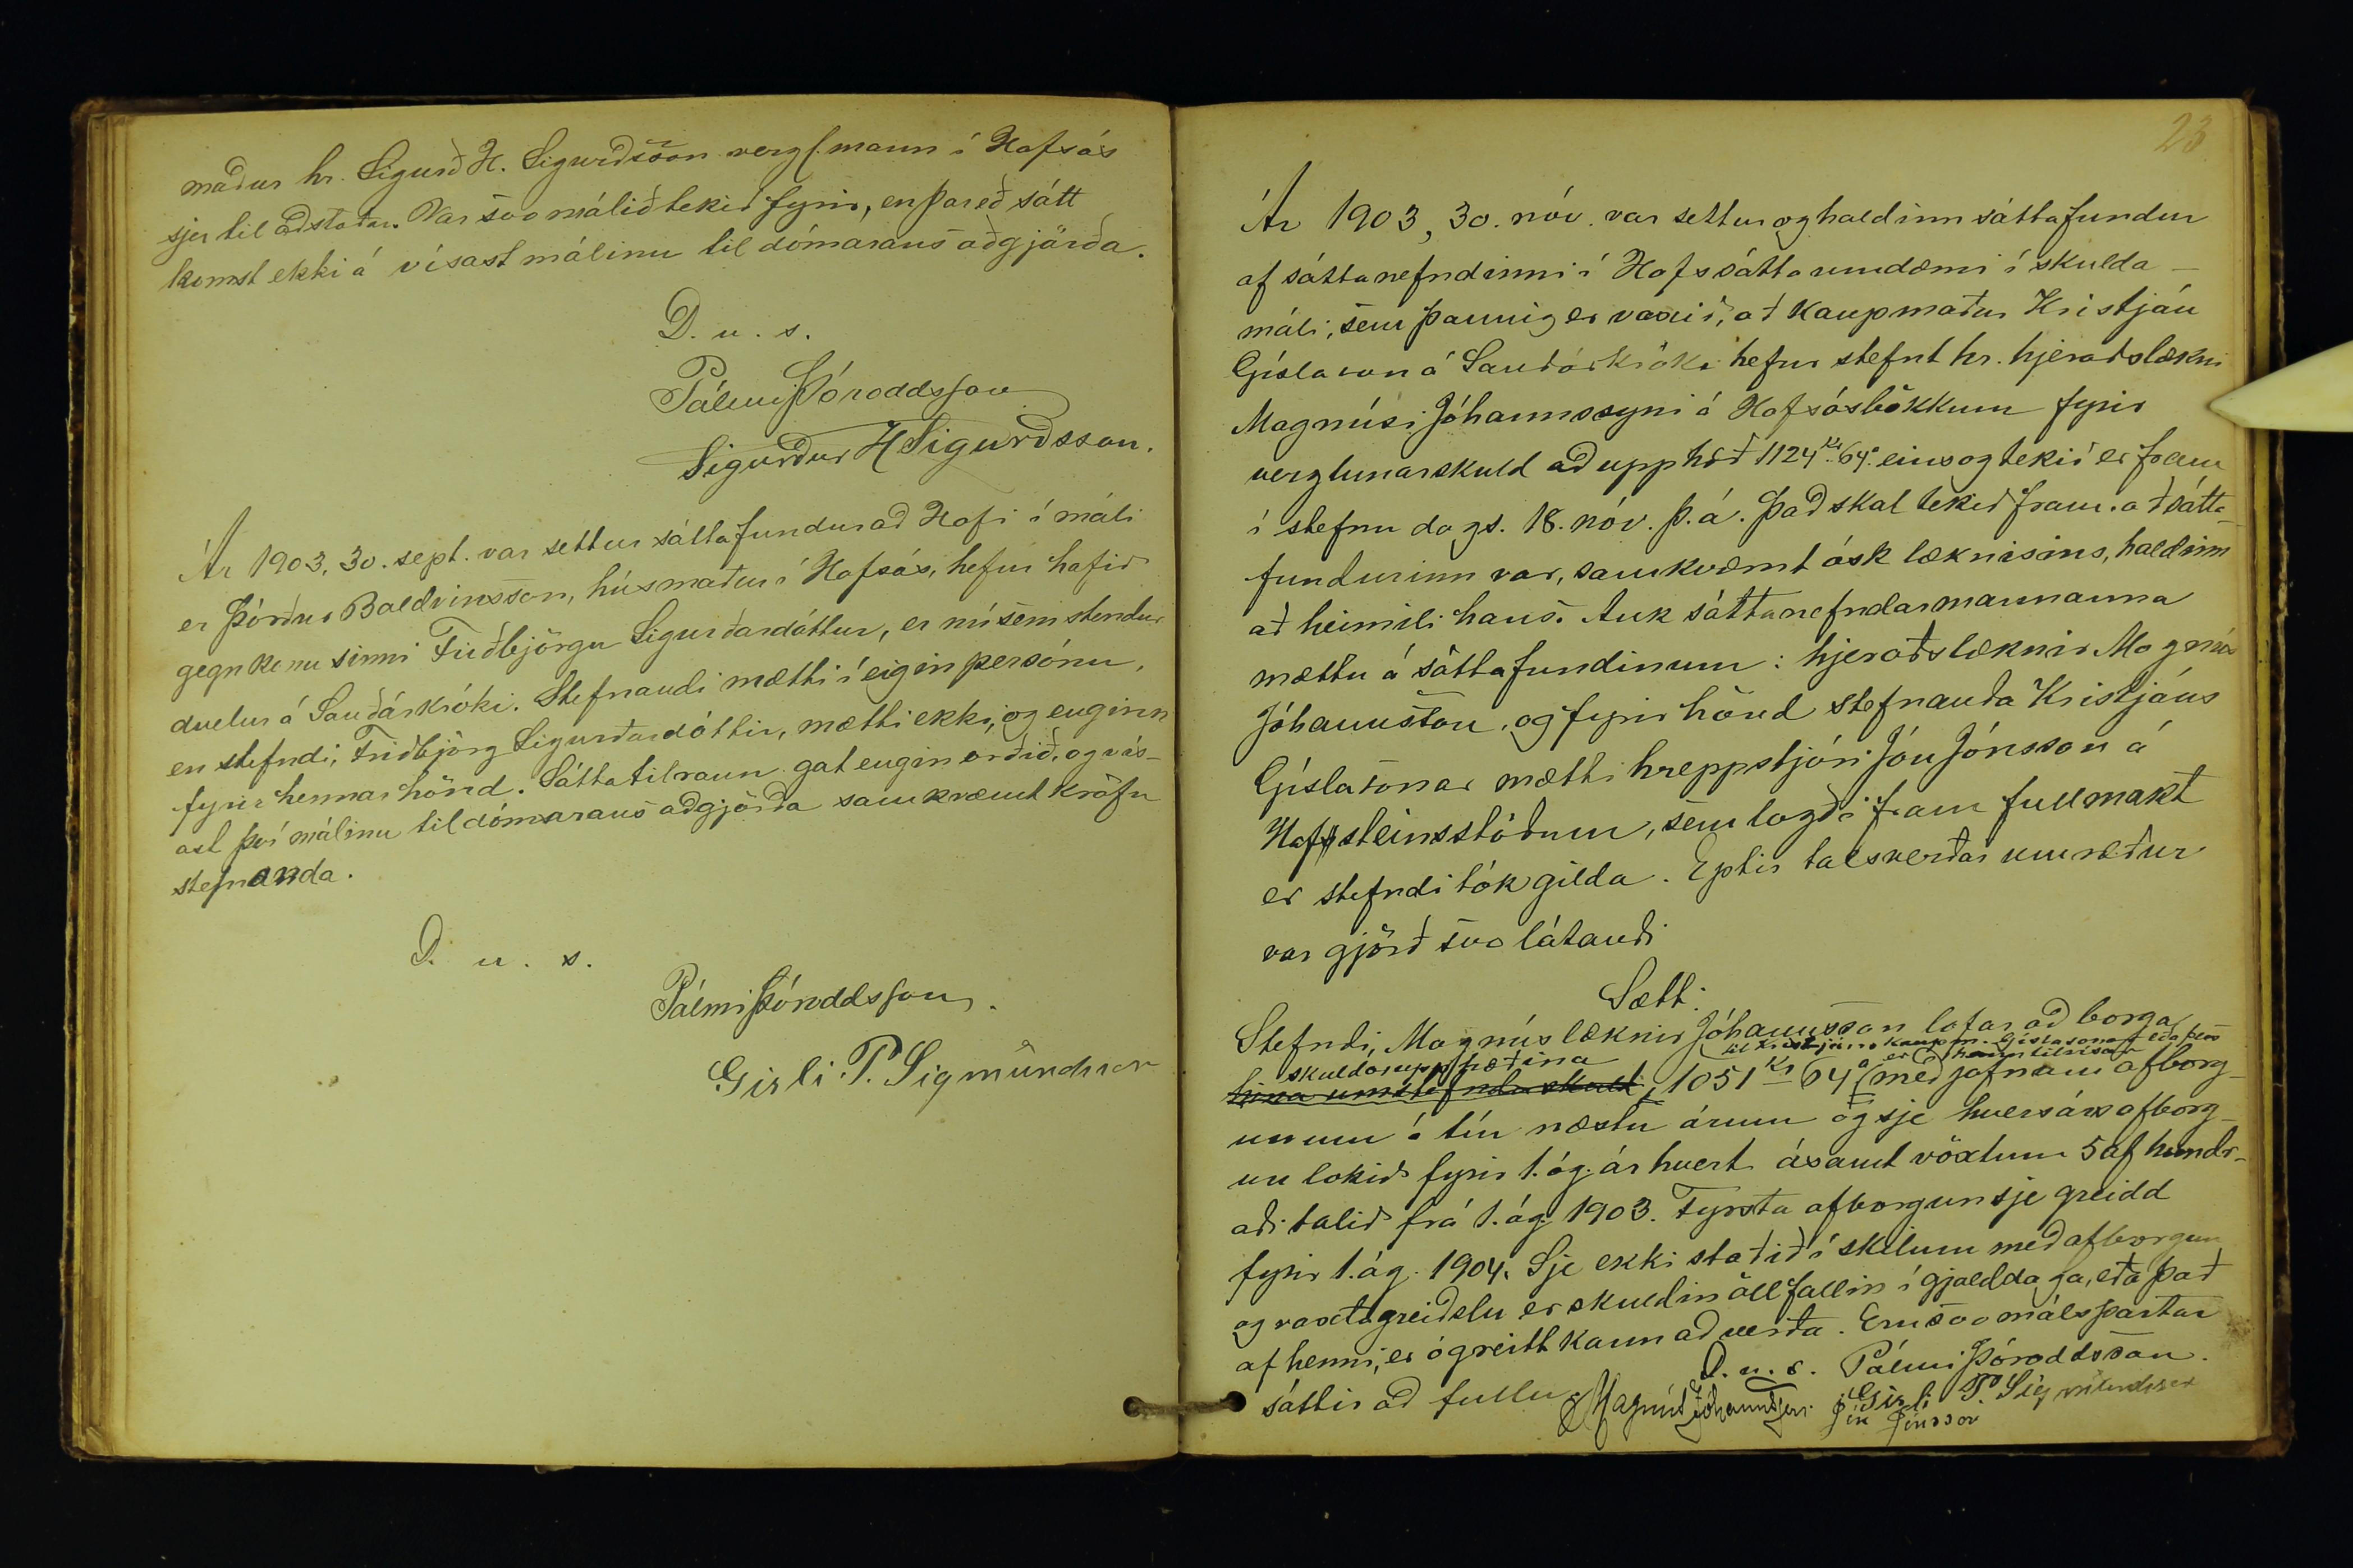 maður hr. Sigurð H. Sigurdsson verzl.mann í Hofsós
sjer til aðstoðar. Var svo málið tekið fyrir, en þareð sátt
komst ekki á vísast málinu til dómarans aðgjörða.
D. u. s.
Pálmi Þóroddsson
Sigurður H Sigurðsson.
Ár 1903, 30. sept. var settur sáttafundur að Hofi í máli
er Þórður Baldvinsson, húsmaður í Hofsós, hefur hafið
gegn konu sinni Friðbjörgu Sigurðardóttur, er nú sem stendur
dvelur á Sauðárkróki. Stefnandi mætti í eigin persónu,
en stefndi, Friðbjörg Sigurðardóttir, mætti ekki, og enginn
fyrir hennar hönd. Sáttatilraun gat engin orðið, og vís-
ast því málinu til dómarans aðgjörða samkvæmt kröfu
stefnanda.
D. u. s.
Pálmi Þóroddsson.
Gisli. P. Sigmundsson
23
Ár 1903, 30. nóv. var settur og haldinn sáttafundur
af sáttanefndinni í Hofssáttaumdæmi í skulda-
máli, sem þannig er vaxið, að kaupmaður Kristján
Gíslason á Sauðárkróki hefur stefnt hr. hjeraðslækni
Magnúsi Jóhannssyni á Hofsósbökkum fyrir
verzlunarskuld að upphæð 1124 kr. 64 a. eins og tekið er fram
í stefnu dags. 18. nóv. þ. á. Það skal tekið fram að sátta-
fundurinn var, samkvæmt ósk læknisins, haldinn
að heimili hans. Auk sáttanefndarmannanna
mættu á sáttafundinum: hjeraðslæknir Magnús
Jóhannsson, og fyrir hönd stefnanda Kristjáns
Gíslasonar mætti hreppstjóri Jón Jónsson á
Hafsteinsstöðum, sem lagði fram fullmakt
er stefndi tók gilda. Eptir talsverðar umræður
var gjörð svo látandi
Sætt:
Stefndi, Magnús læknir Jóhannsson lofar að borga
til Kristjáns kaupm. Gíslasonar eða þess
skuldarupphæðina er hann tilvísar
hina umstefndu skuld, 1051 Kr 64 a með jöfnum afborg-
unum á tíu næstu árum og sje hversárs afborg-
un lokið fyrir 1. ág. ár hvert ásamt vöxtum 5 af hundr-
aði talið frá 1. ág. 1903. Fyrsta afborgun sje greidd
fyrir 1. ág. 1904. Sje ekki staðið í skilum með afborgun
og vaxtagreiðslu er skuldin öll fallin í gjalddaga, eða það
af henni, er ógreitt kann að verða. Eru svo málspartar
sáttir að fullu.
D. u. s. Pálmi Þóroddsson.
Magnús Jóhannsson. Gisli P. Sigmundsson
Jón Jónsson